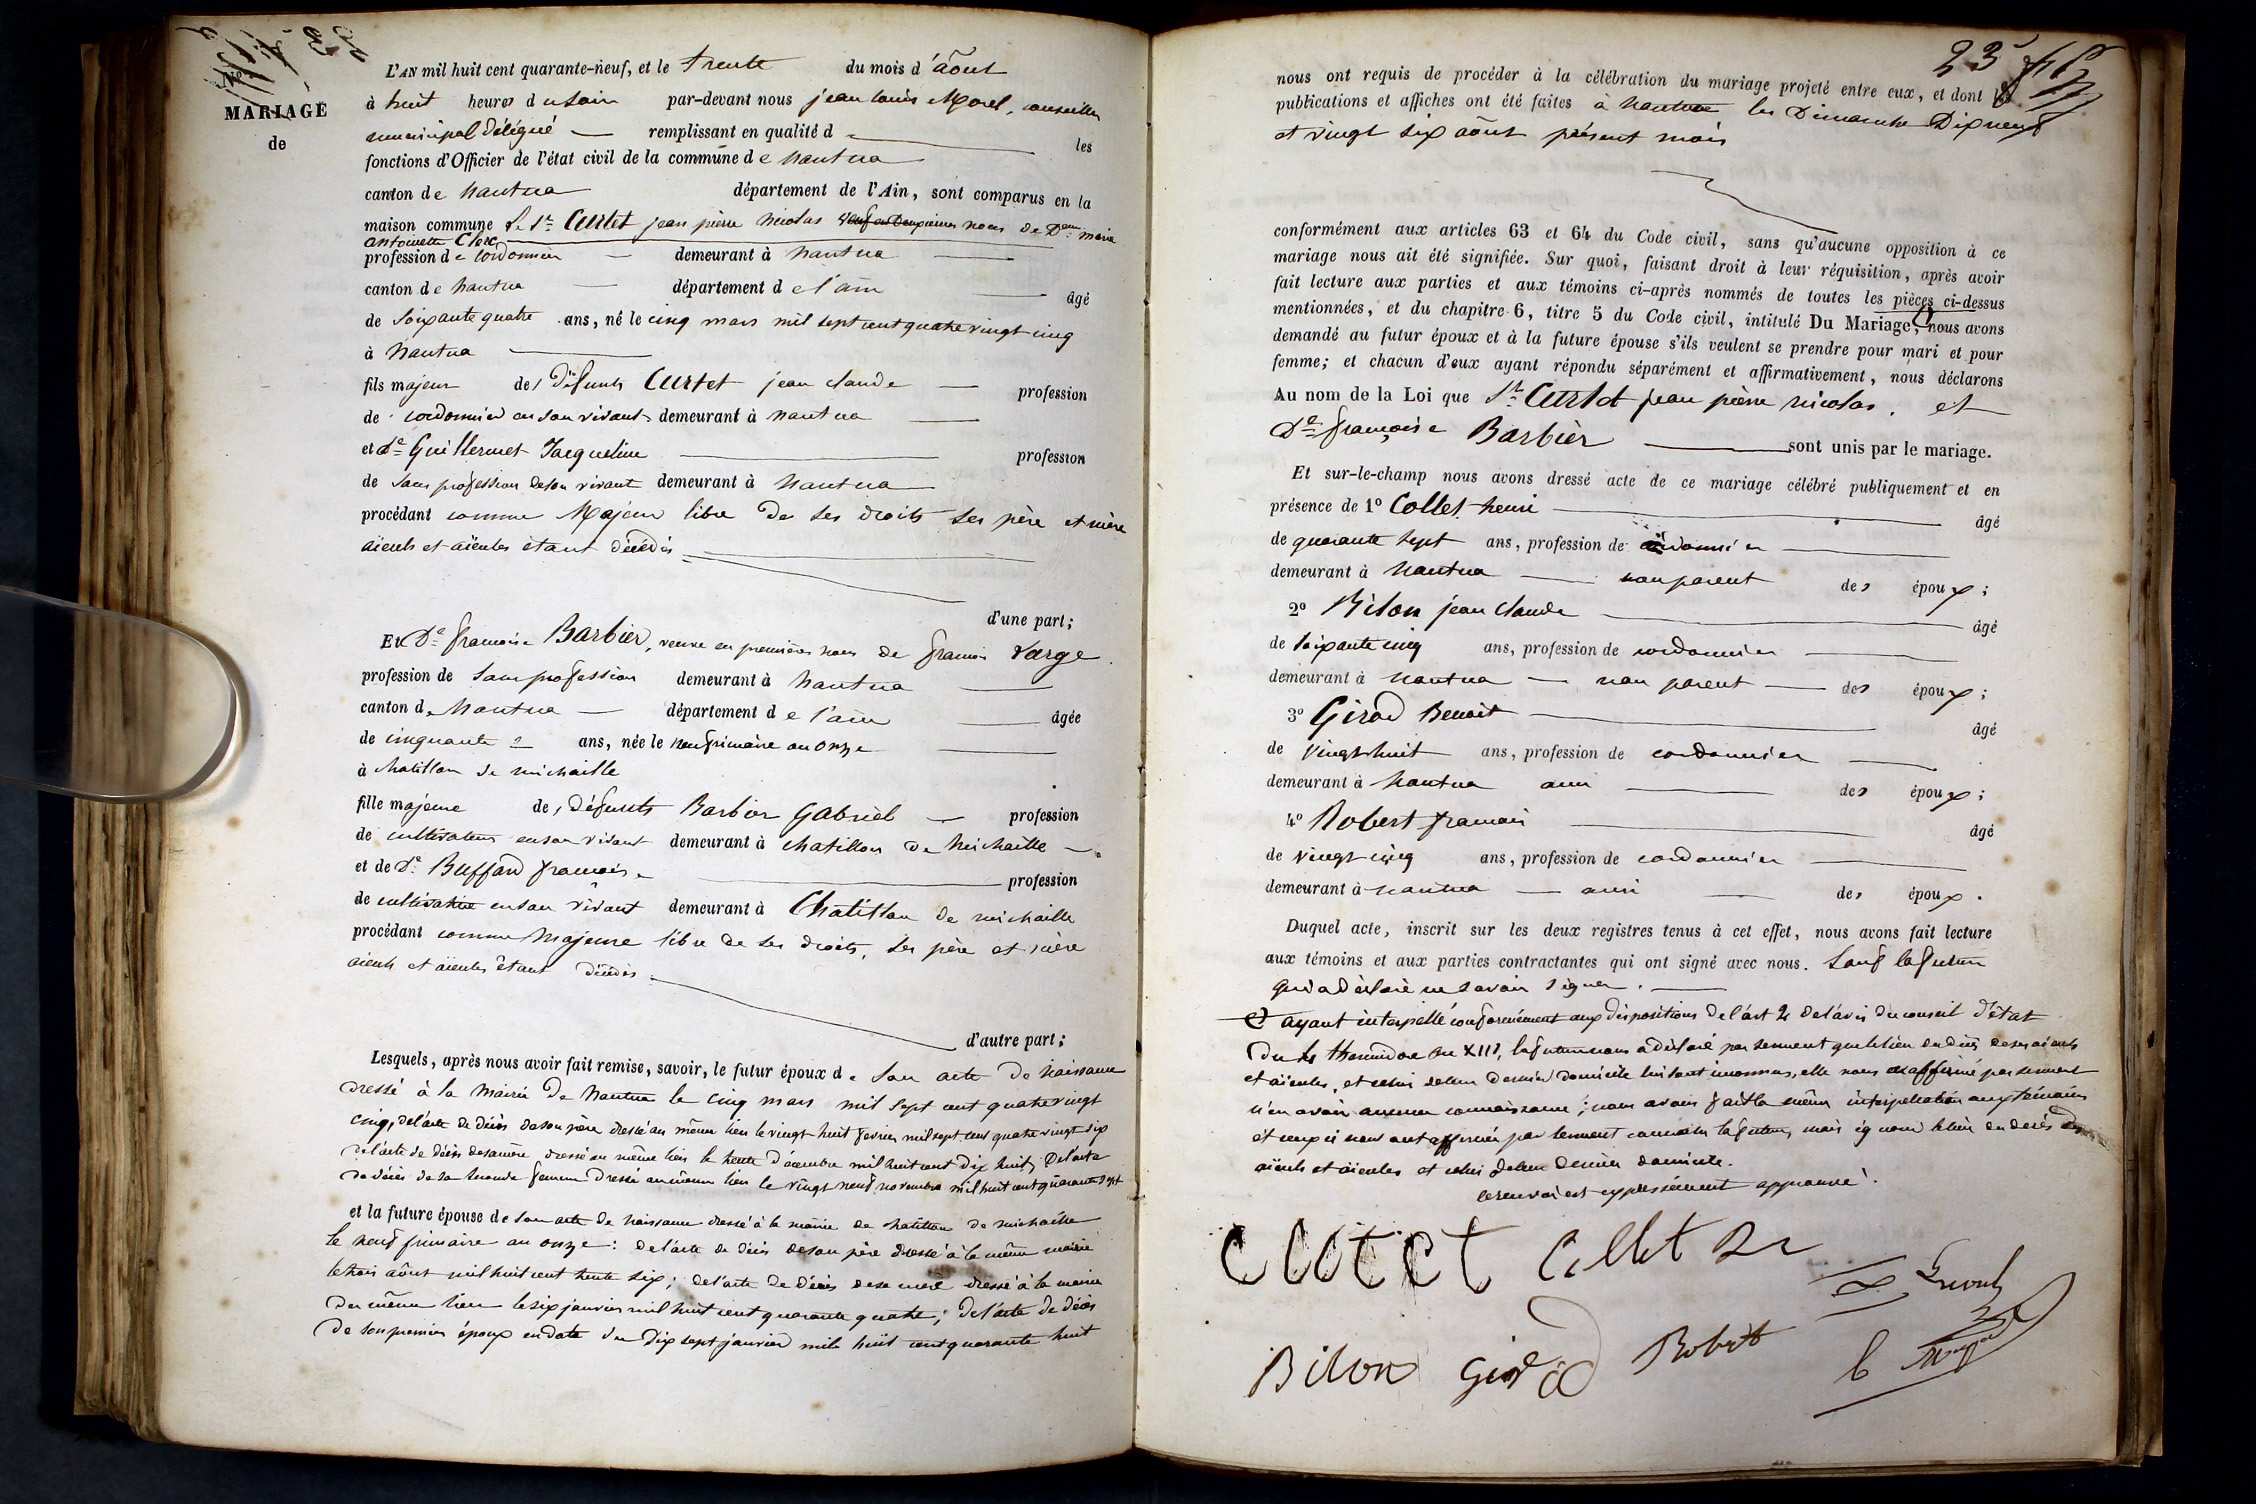 MARIAGE
de
L'AN mil huit cent quarante-neuf, et le trente du mois d'août
à huit heures du soir par-devant nous jean Louis Morel, conseiller
municipal délégué — remplissant en qualité d les
fonctions d'Officier de l'état civil de la commune de nantua
canton de nantua département de l'Ain, sont comparus en la
maison commune Le Sr Curtet jean pierre nicolas veuf en deuxièmes noces de Dem marie
antoinette Clerc
profession de cordonnier — demeurant à nantua
canton de nantua — département de l'ain âgé
de soixante quatre ans, né le cinq mars mil sept cent quatre vingt cinq
à nantua
fils majeur des défunts Curtet jean claude — profession
de cordonnier en son vivant demeurant à nantua
et de Guillermet Jacqueline profession
de sans profession de son vivant demeurant à nantua
procédant comme Majeur libre de ses droits ses père et mère
aïeuls et aïeules étant décédés
d'une part;
Et De françoise Barbier, veuve en premières noces de françois Varge
profession de sans profession demeurant à nantua
canton de Nantua — département de l'ain âgée
de cinquante ans, née le neuf frimaire an onze
à chatillon de michaille
fille majeure des défunts Barbier Gabriel — profession
de cultivateur en son vivant demeurant à chatillon de Michaille
et de De Buffard françoise profession
de cultivatrice en son vivant demeurant à Chatillon de michaille
procédant comme Majeure libre de ses droits, ses père et mère
aïeuls et aïeules étant décédés
d'autre part;
Lesquels, après nous avoir fait remise, savoir, le futur époux de son acte de naissance
dressé à la Mairie de Nantua le cinq mars mil sept cent quatre vingt
cinq, de l'acte de décès de son père dressé au même lieu le vingt huit fevrier mil sept cent quatre vingt six
de l'acte de décès de sa mère dressé au même lieu le trente décembre mil huit cent dix huit, De l'acte
de décès de sa seconde femme dressé au même lieu le vingt neuf novembre mil huit cent quarante sept
et la future épouse de son acte de naissance dressé à la mairie de chatillon de michaille
le neuf frimaire an onze: de l'acte de décès de son père dressé à la même mairie
le trois août mil huit cent trente six; de l'acte de décès de sa mère dressé à la mairie
du même lieu le six janvier mil huit cent quarante quatre; de l'acte de décès
de son premier époux en date du dix sept janvier mil huit cent quarante huit
23
nous ont requis de procéder à la célébration du mariage projeté entre eux, et dont les
publications et affiches ont été faites à nantua les Dimanche Dix neuf
et vingt six août présent mois
conformément aux articles 63 et 64 du Code civil, sans qu'aucune opposition à ce
mariage nous ait été signifiée. Sur quoi, faisant droit à leur réquisition, après avoir
fait lecture aux parties et aux témoins ci-après nommés de toutes les pièces ci-dessus
mentionnées, et du chapitre 6, titre 5 du Code civil, intitulé Du Mariage, nous avons
demandé au futur époux et à la future épouse s'ils veulent se prendre pour mari et pour
femme; et chacun d'eux ayant répondu séparément et affirmativement, nous déclarons
Au nom de la Loi que Sr Curtet jean pierre nicolas. et
De françoise Barbier sont unis par le mariage.
Et sur-le-champ nous avons dressé acte de ce mariage célébré publiquement et en
présence de 1º Collet henri âgé
de quarante sept ans, profession de cordonnier
demeurant à nantua — non parent des époux;
2º Bilon jean claude âgé
de soixante cinq ans, profession de cordonnier
demeurant à nantua — non parent — des époux;
3º Girod Benoit âgé
de vingt huit ans, profession de cordonnier
demeurant à nantua ami des époux;
4º Robert françois âgé
de vingt cinq ans, profession de cordonnier
demeurant à nantua — ami des époux.
Duquel acte, inscrit sur les deux registres tenus à cet effet, nous avons fait lecture
aux témoins et aux parties contractantes qui ont signé avec nous. Sauf la future
qui a déclaré ne savoir signer.
ayant interpellé conformément aux dispositions de l'art 2 de l'avis du conseil d'état
du thermidor an XIII, la future nous a déclaré par serment que le lieu du décès de ses aïeuls
et aïeules, et celui de leur dernier domicile lui sont inconnus, elle nous a affirmé par serment
n'en avoir aucune connaissance; nous avons fait la même interpellation aux témoins
et ceux ci nous ont affirmé par serment connaitre la future, mais ignorer le lieu du décès des
aïeuls et aïeules et celui de leur dernier domicile.
ce renvoi est expressément approuvé.
Cutet Collet
Bilon Girod Robert